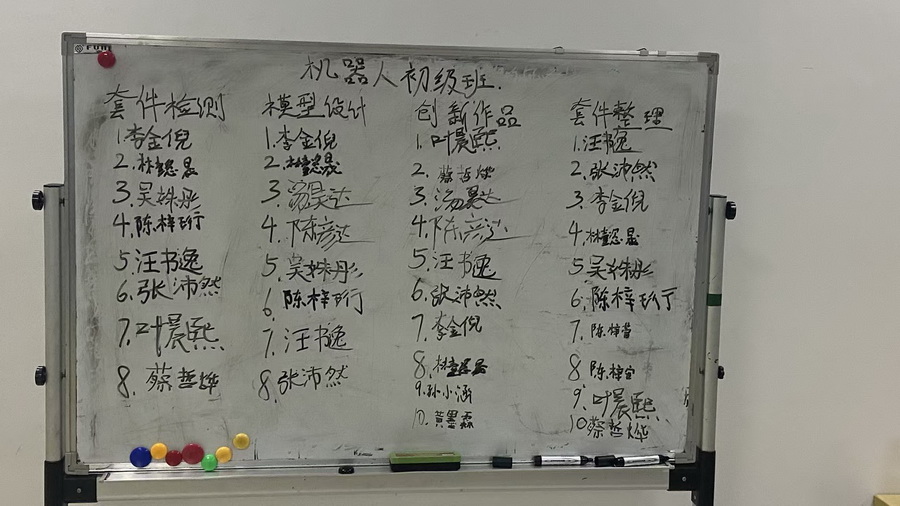 机器人初级班.
套件检测
1.李金倪
2.林慧晟
3.吴姝彤
4.陈梓珩
5.汪书逸
6.张沛然
7.叶晨熙
8.蔡哲烨
模型设计
1.李金倪
2.林慧晟
3.汤昊达
4.陈彦达
5.吴姝彤
6.陈梓珩
7.汪书逸
8.张沛然
创新作品
1.叶晨熙
2.蔡哲烨
3.汤昊达
4.陈彦达
5.汪书逸
6.张沛然
7.李金倪
8.林慧晟
9.孙小涵
10.黄墨森
套件整理
1.汪书逸
2.张沛然
3.李金倪
4.林慧晟
5.吴姝彤
6.陈梓珩
7.陈梓
8.陈梓
9.叶晨熙
10蔡哲烨